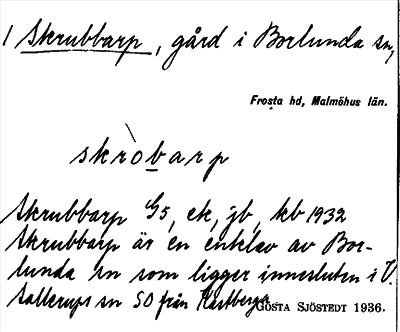 1 Skrubbarp, gård i Borlunda sn,
Frosta hd, Malmöhus län.
skròbarp
Skrubbarp G5, ek, jb, kb 1932
Skrubbarp är en enklav av Bor-
lunda sn som ligger innesluten i V.
Sallerups sn SO från Kastberga
GÖSTA SJÖSTEDT 1936.